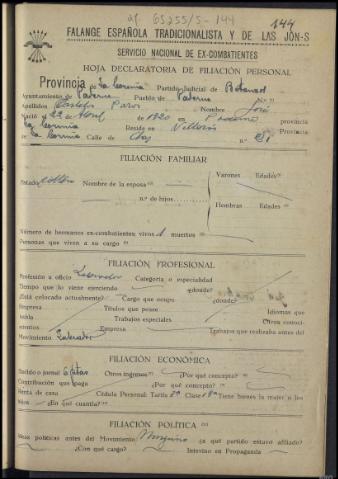 af 65255/5-144
144
FALANGE ESPAÑOLA TRADICIONALISTA Y DE LAS JON-S
SERVICIO NACIONAL DE EX-COMBATIENTES
HOJA DECLARATORIA DE FILIACIÓN PERSONAL
Provincia de La Coruña Partido Judicial de Betanzos
Ayuntamiento de Paderne Pueblo de Paderne
Apellidos Nombre José
Nació 22 Abril de 1920 en Paderne provincia
La Coruña Reside en provincia
La Coruña Calle de n.º
FILIACIÓN FAMILIAR
Estado Nombre de la esposa Varones Edades
n.º de hijos
Hembras Edades
Número de hermanos ex-combatientes: vivos 1 muertos
Personas que viven a su cargo
FILIACIÓN PROFESIONAL
Profesión u oficio Labrador Categoría o especialidad
Tiempo que lo viene ejerciendo ¿dónde?
¿Está colocado actualmente? Cargo que ocupa ¿dónde?
Empresa Títulos que posee Idiomas que
habla Trabajos especiales Otros conoci-
mientos Empresa Trabajos que realizaba antes del
Movimiento Labrador
FILIACIÓN ECONÓMICA
Sueldo o jornal 6 ptas Otros ingresos ¿Por qué concepto?
Contribución que paga ¿Por qué concepto?
Renta de casa Cédula Personal: Tarifa Clase Tiene bienes la mujer o los
hijos ¿En qué cuantía?
FILIACIÓN POLÍTICA
Ideas políticas antes del Movimiento Ninguna ¿a qué partido estuvo afiliado?
¿Con qué cargo? Intervino en Propaganda